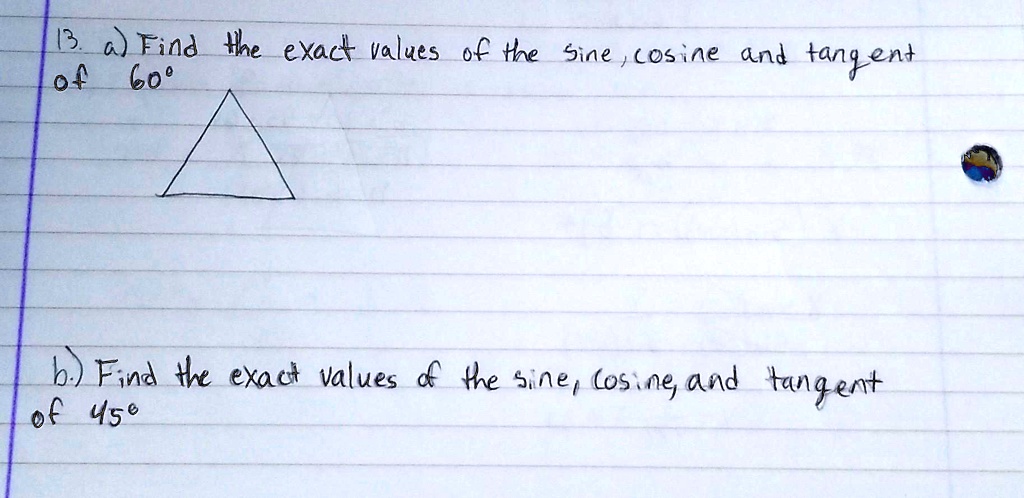 13. a) Find the exact values of the sine, cosine and tangent
of 60°
b.) Find the exact values of the sine, cosine, and tangent
of 45°